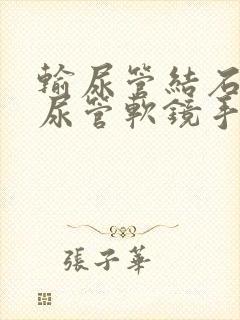 輸尿管結石
尿管軟鏡手
張子華